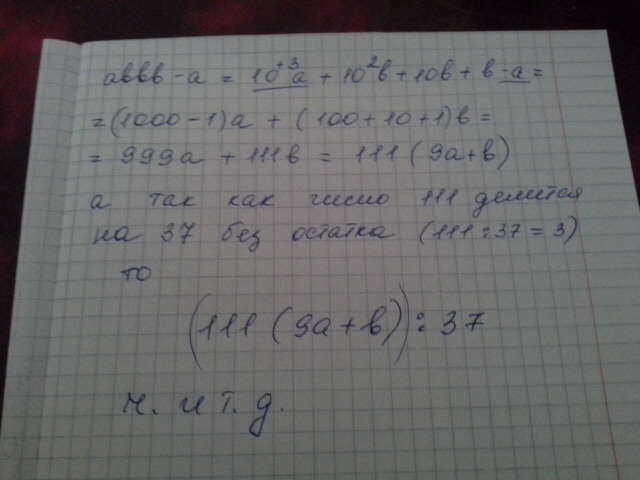 аввв - а = 10³а + 10²в + 10в + в - а =
= (1000 - 1)а + (100 + 10 + 1)в =
= 999а + 111в = 111 (9а + в)
а так как число 111 делится
на 37 без остатка (111 : 37 = 3)
то
(111 (9а + в)) : 37
ч. и т. д.